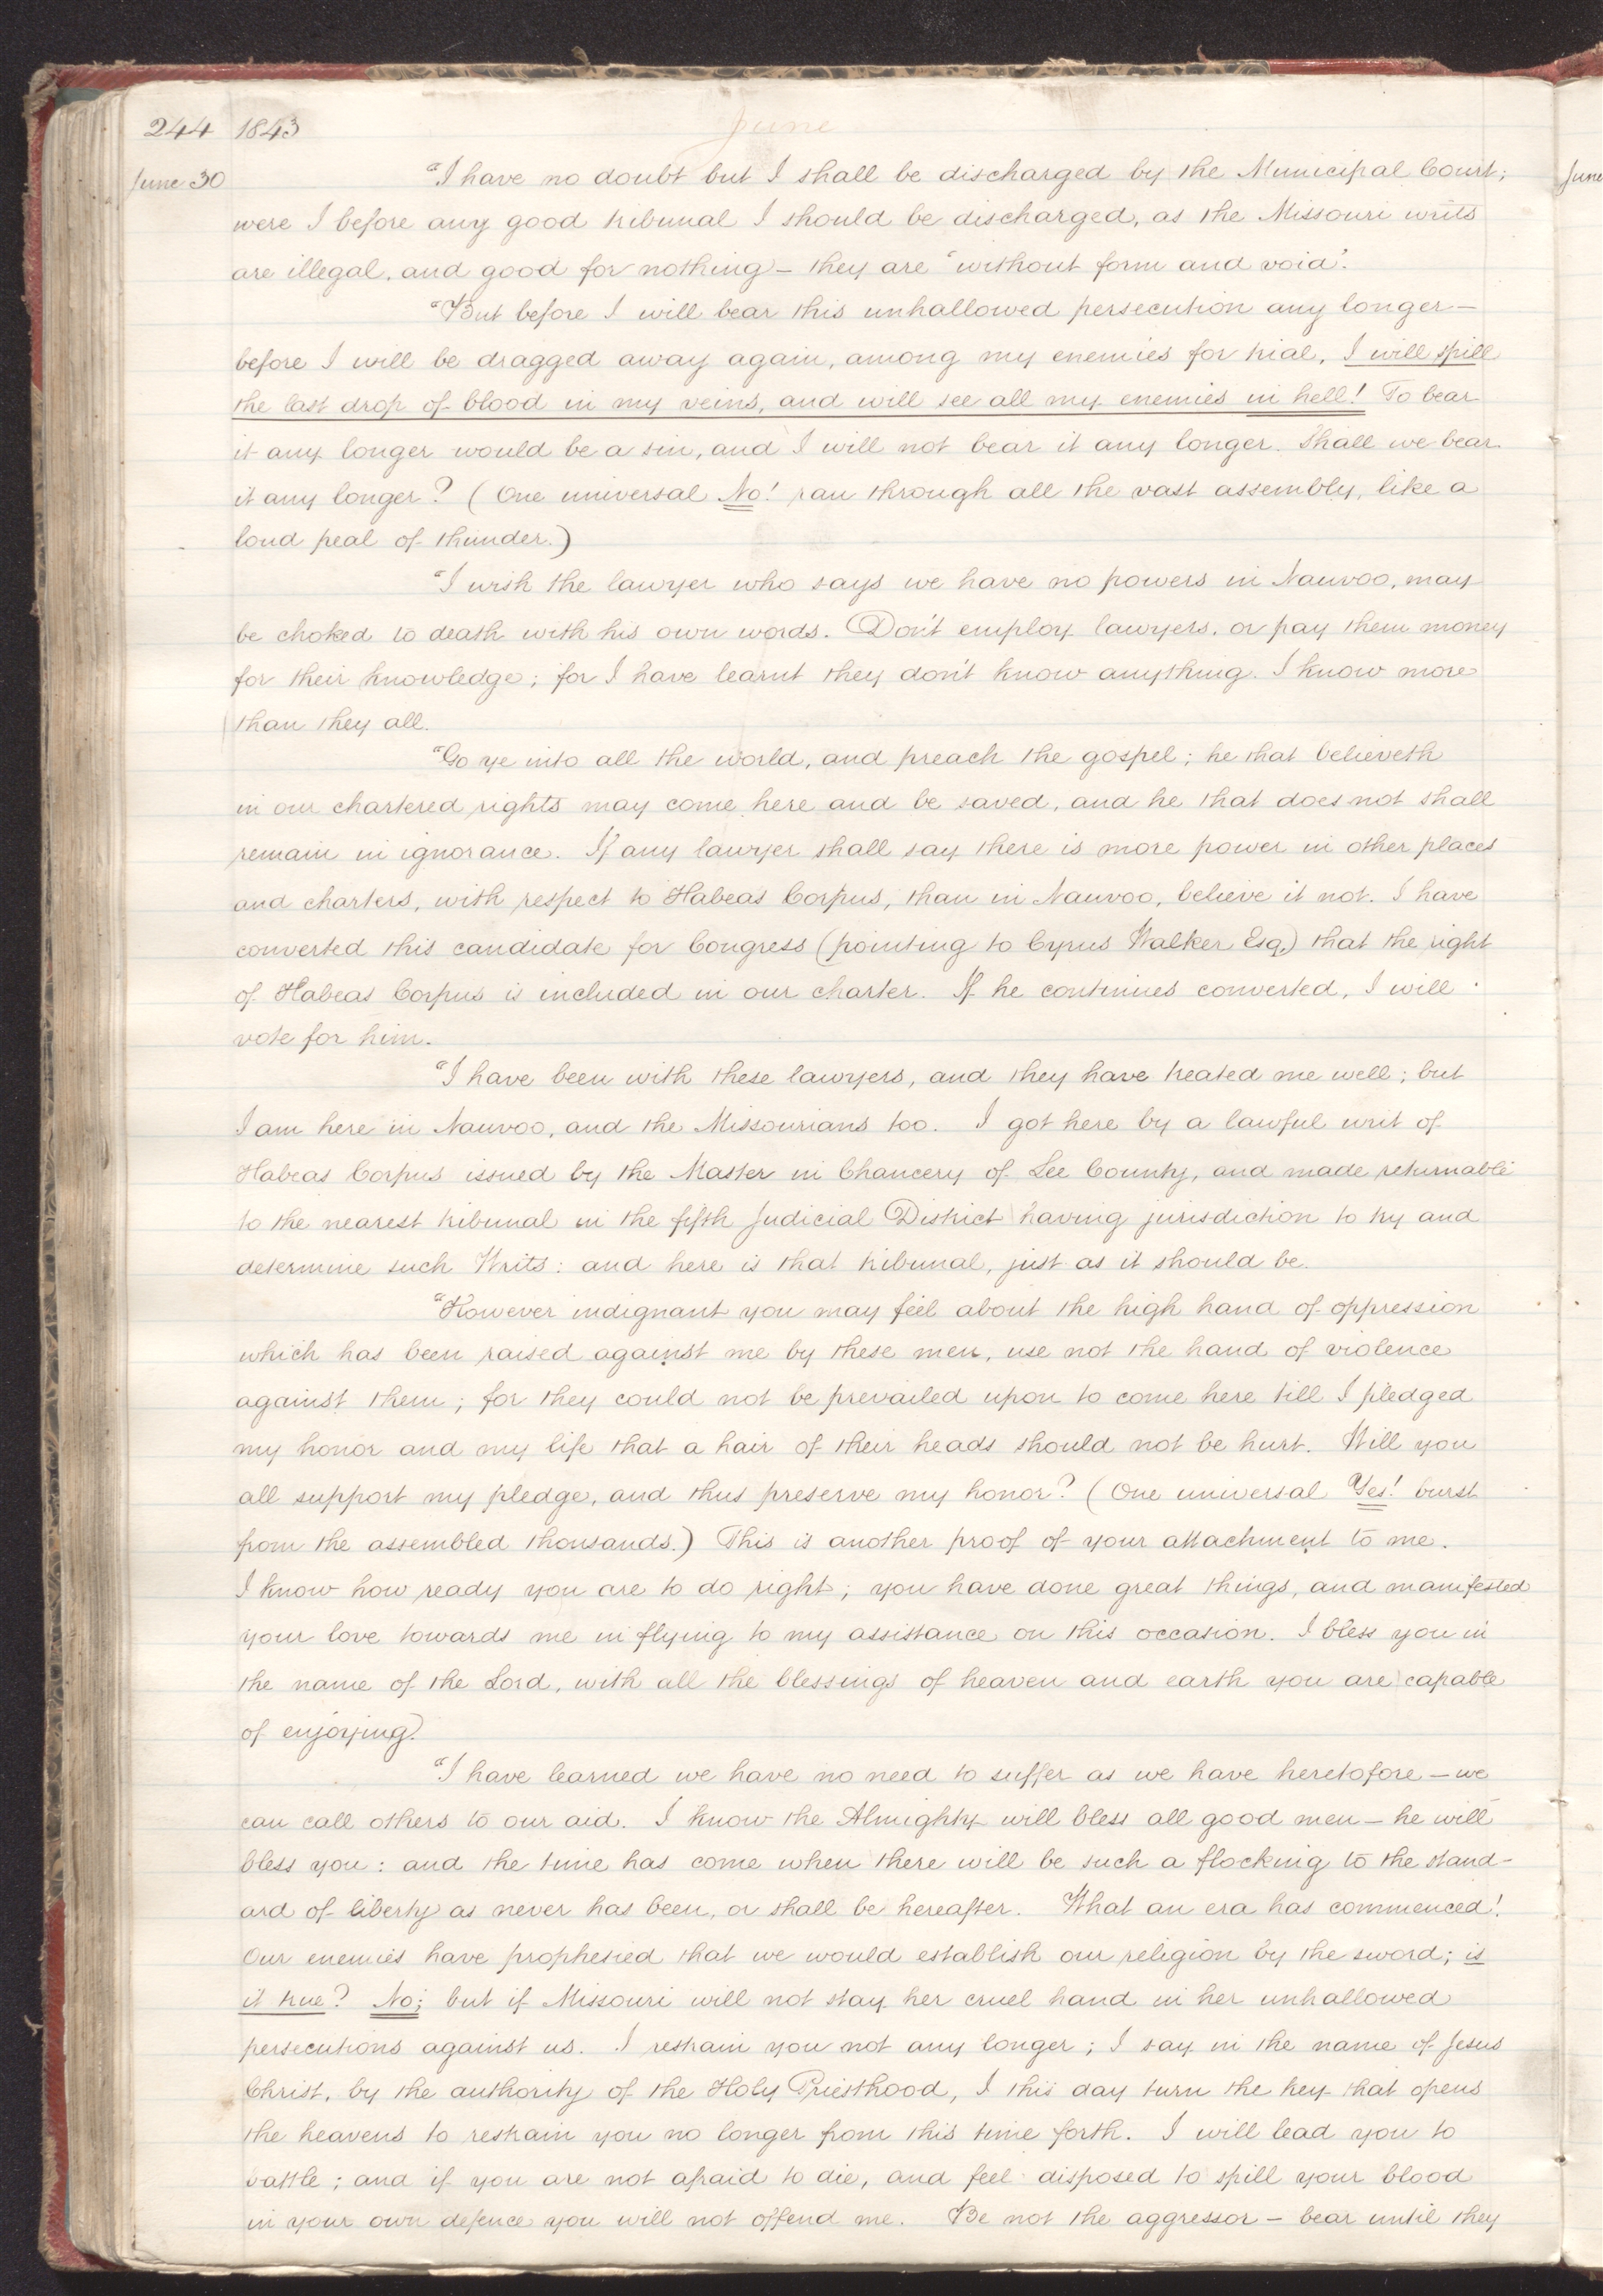 244 1843 June
June 30 "I have no doubt but I shall be discharged by the Municipal Court;
were I before any good tribunal I should be discharged, as the Missouri writs
are illegal, and good for nothing — they are "without form and void".
"But before I will bear this unhallowed persecution any longer —
before I will be dragged away again, among my enemies for trial, I will spill
the last drop of blood in my veins, and will see all my enemies in hell! To bear
it any longer would be a sin, and I will not bear it any longer. Shall we bear
it any longer? (One universal No! ran through all the vast assembly, like a
loud peal of thunder.)
"I wish the lawyer who says we have no powers in Nauvoo, may
be choked to death with his own words. Don't employ lawyers, or pay them money
for their knowledge; for I have learnt they don't know anything. I know more
than they all.
"Go ye into all the world, and preach the gospel; he that believeth
in our chartered rights may come here and be saved, and he that does not shall
remain in ignorance. If any lawyer shall say there is more power in other places
and charters, with respect to Habeas Corpus, than in Nauvoo, believe it not. I have
converted this candidate for Congress (pointing to Cyrus Walker Esq.) that the right
of Habeas Corpus is included in our charter. If he continues converted, I will
vote for him.
"I have been with these lawyers, and they have treated me well; but
I am here in Nauvoo, and the Missourians too. I got here by a lawful writ of
Habeas Corpus issued by the Master in Chancery of Lee County, and made returnable
to the nearest tribunal in the fifth Judicial District having jurisdiction to try and
determine such Writs: and here is that tribunal, just as it should be.
"However indignant you may feel about the high hand of oppression
which has been raised against me by these men, use not the hand of violence
against them; for they could not be prevailed upon to come here till I pledged
my honor and my life that a hair of their heads should not be hurt. Will you
all support my pledge, and thus preserve my honor? (One universal Yes! burst
from the assembled thousands.) This is another proof of your attachment to me.
I know how ready you are to do right; you have done great things, and manifested
your love towards me in flying to my assistance on this occasion. I bless you in
the name of the Lord, with all the blessings of heaven and earth you are capable
of enjoying.
"I have learned we have no need to suffer as we have heretofore — we
can call others to our aid. I know the Almighty will bless all good men — he will
bless you: and the time has come when there will be such a flocking to the stand-
ard of liberty as never has been, or shall be hereafter. What an era has commenced!
Our enemies have prophesied that we would establish our religion by the sword; is
it true? No; but if Missouri will not stay her cruel hand in her unhallowed
persecutions against us. I restrain you not any longer; I say in the name of Jesus
Christ, by the authority of the Holy Priesthood, I this day turn the key that opens
the heavens to restrain you no longer from this time forth. I will lead you to
battle; and if you are not afraid to die, and feel disposed to spill your blood
in your own defence you will not offend me. Be not the aggressor — bear until they
June